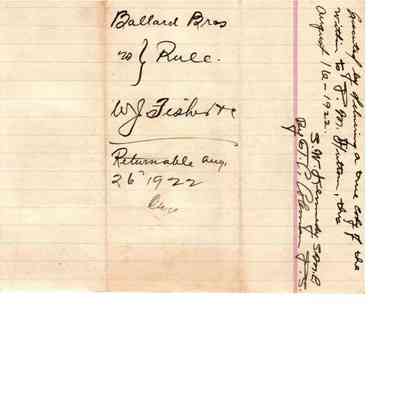 Ballard Bros
vs } Rule.
W J Fisher
Returnable Aug.
26" 1922
Executed by delivering a true copy of the
within to J M Hutton, this
August 16-1922.
S. W. Kennedy S.M.C
By
D.S.